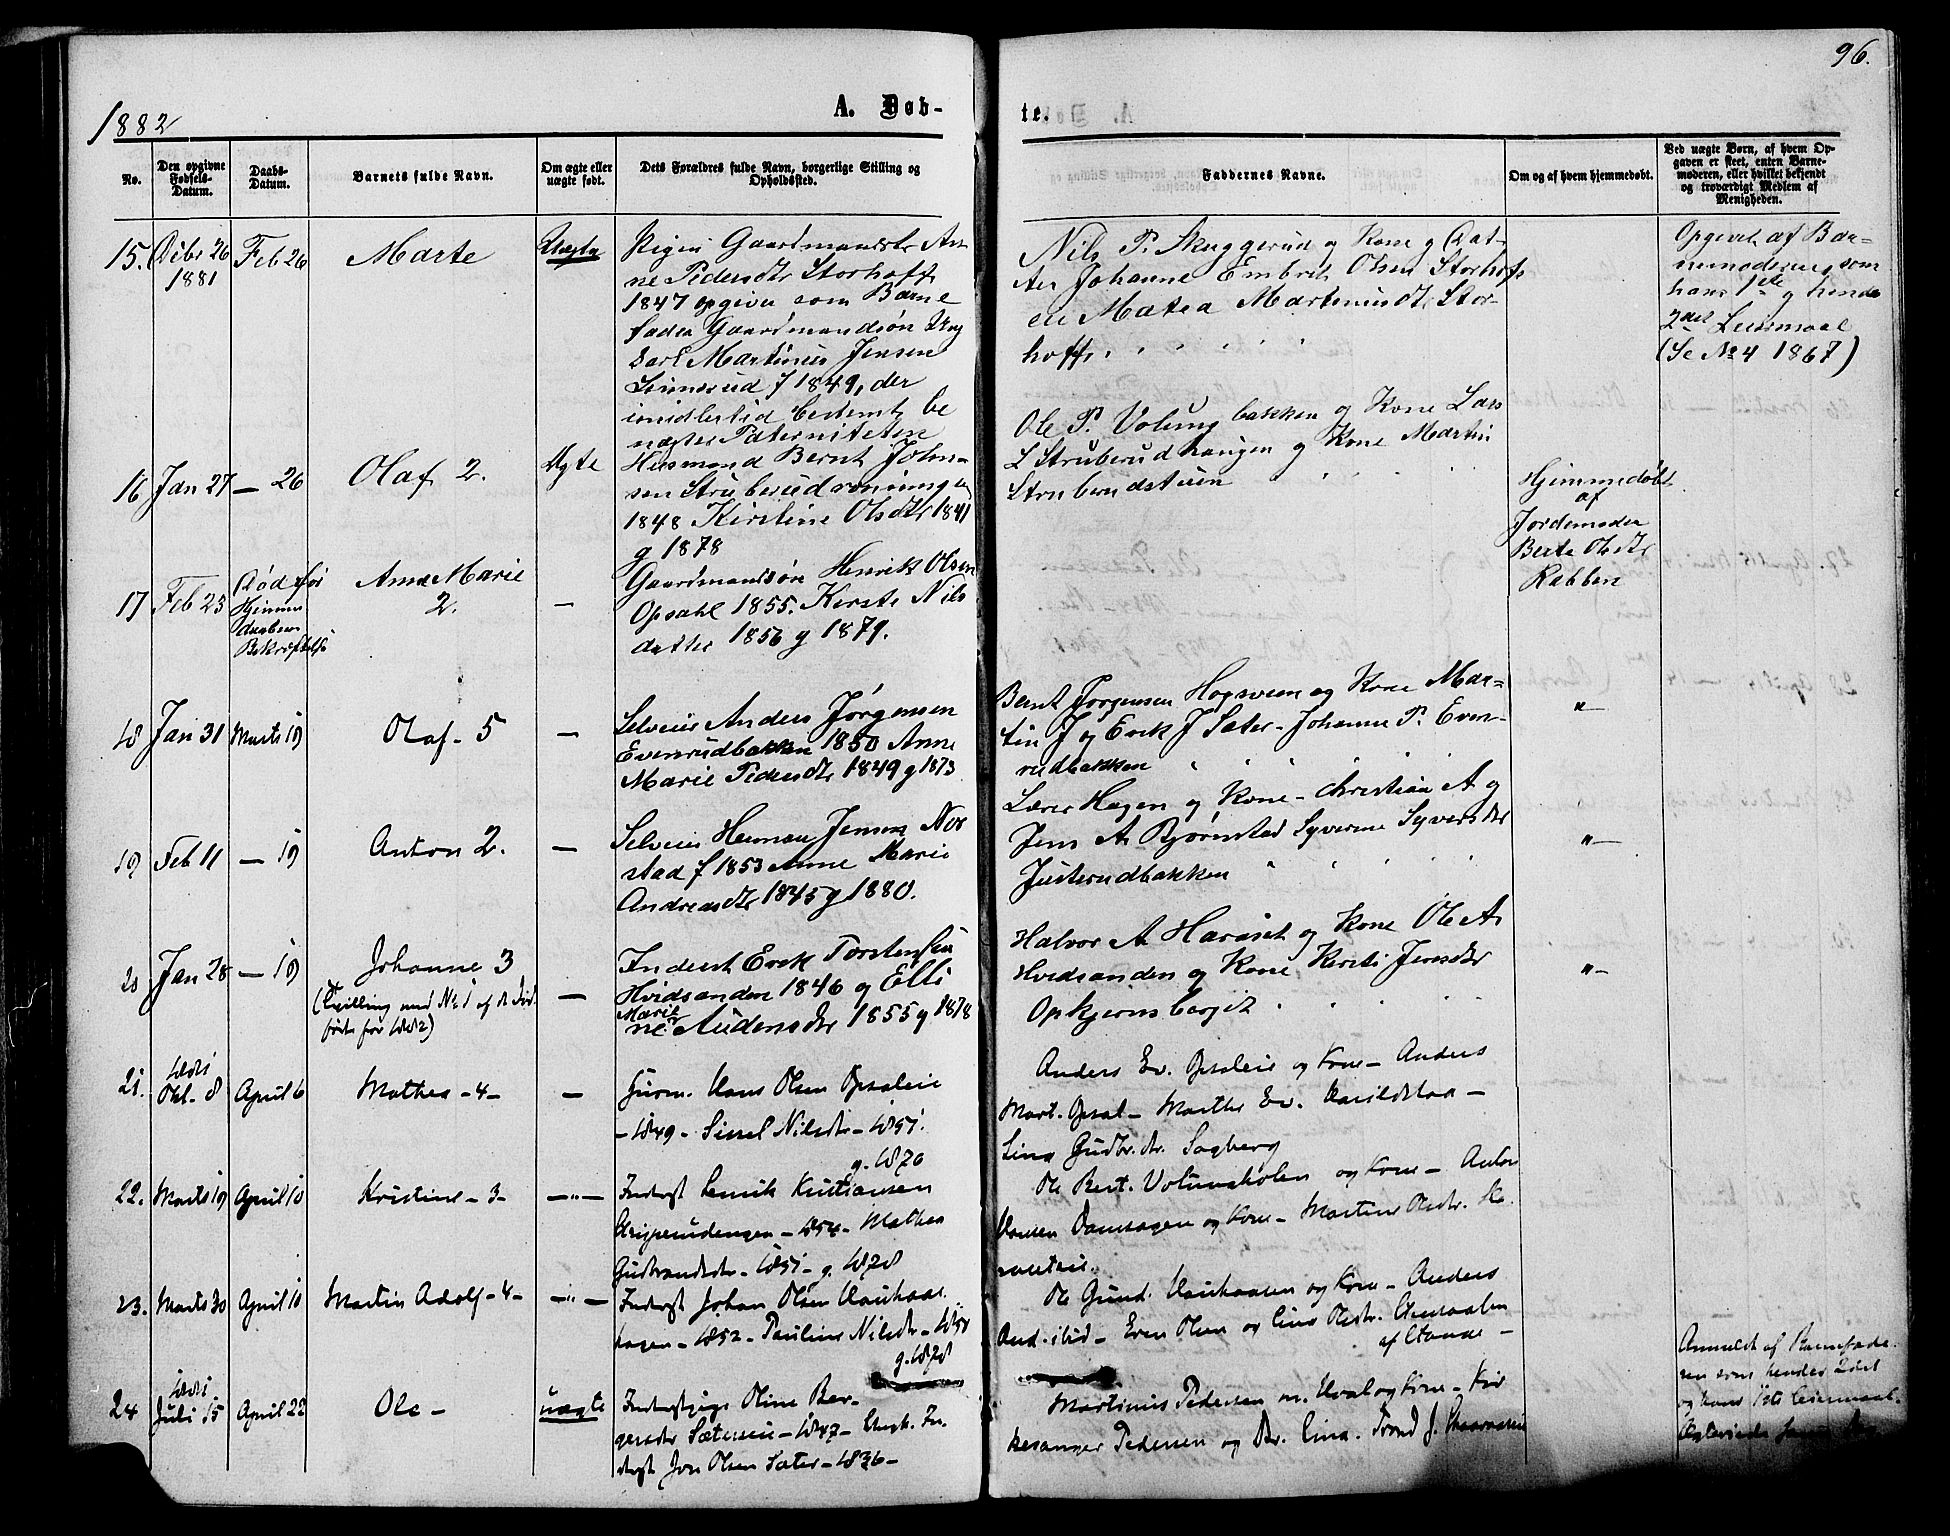 96.
1882
A. Døb-
te.
No.
Den opgivne Fødsels-Datum.
Daabs-Datum.
Barnets fulde Navn.
Om ægte eller uægte født.
Dets Forældres fulde Navn, borgerlige Stilling og Opholdssted.
Faddernes Navne.
Om og af hvem hjemmedøbt.
Ved uægte Børn, af hvem Op-
gaven er skeet, enten Barne-
moderen, eller hvilket bekjendt
og troværdigt Medlem af
Menigheden.
15. Debr 26 1881
Feb 26
Marte
Uægte
Pigen Gaardmandsdtr An
ne Pedersdtr Storhoff
1847 opgiver som Barne
fader Gaardmandsøn Ung
karl Martinus Jensen
f 1849, der
imidlertid bestemt be
nægter Paterniteten
Nils P. Skuggerud og Kone g Dat
ter Johanne Embrik Olsen Storhof
Matea Martinusdtr Stor-
hoff
Opgivet af Bar-
nemoderen, som
hans 1ste g hendes
2det Leiermaal
(Se No 4 1867)
16 Jan 27
— 26
Olaf 2.
Ægte
Husmand Bernt John-
sen Struberudroningen
1848 Kirstine Olsdtr 1841
g 1878
Ole P. Volungbakken og Kone Lars
L Struberudhaugen og Kone Martin
Struberudstuen
Hjemmedøbt
af
Jordemoder
Berte Olsdtr
Rabben
17 Feb 23
Død før
Hjemme
daabens
Bekræftelse
Anne Marie
2.
—
Gaardmandsøn Henrik Olsen
Opsahl 1855. Kersti Nils
datter 1856 g 1879.
18 Jan 31
Marts 19
Olaf - 5
—
Selveier Anders Jørgensen
Evenrudbakken 1850 Anne
Marie Pedersdtr 1849 g 1873
Bernt Jørgensen Hogsveen og Kone Mar=
tin J og Erek J Sæter - Johanne P. Even-
rudbakken
"—
19 Feb 11
— 19
Anton 2.
—
Selveier Herman Jensen Nor
stad f 1853 Anne Marie
Andreasdtr 1845 g 1880.
Lærer Hagen og Kone - Christian A g
Jens A Bjørnstad Syverine Syversdtr
Justerudbakken
"—
20 Jan 28
— 19
Johanne 3
(Tvilling med No 1 af de
førte for 1882)
—
Inderst Erek Torstensen
Hvidsanden 1846 og Elli
Marie
ne Audensdtr 1855 g 1878
Halvor A Haraset og Kone Ole A
Hvidsanden og Kone Kersti Jensdtr
Opkjernsberget
"—
21. 1881
Okt. 8
April 6
Mathea - 4 -
—
Gürm. Hans Olsen Opsaleie
- 1849 - Sissel Nilsdtr - 1851.
g. 1870
Anders Ev. Opsaleie og Kone - Anders
Mart. Opsal - Marthe Ev.
Lina Gudbr.dtr. Sagberg
22. Marts 19
April 10
Kristine - 3 -
—"—
Inderst Henrik Kristiansen
- 1854 - Mathea
Gudbrandsdtr - 1851 - g. 1878
Ole Bert. Volungholen og Kone - Anton
Hansen Damhagen og Kone - Martine Olsdtr.
23. Marts 30
April 10
Martin Adolf - 4 -
—"—
Inderst Johan Olsen
hagen - 1852 - Pauline Nilsdtr - 1854
g. 1878
Ole Gund. og Kone - Anders
And. ibid - Even Olsen og Lina Olsdtr.
24 1881
Juli 15
April 22
Ole -
uægte
Inderstpige Oline Ber-
gersdtr Sæterseie - 1847 - Ungk. In-
derst Jon Olsen Sæter - 1836 -
Martinus Pedersen og Kone -
Pedersen og Lina. Trond J.
Anmeldt af Barnefade
ren som hendes 2det
og hans 1ste Leiermaal.